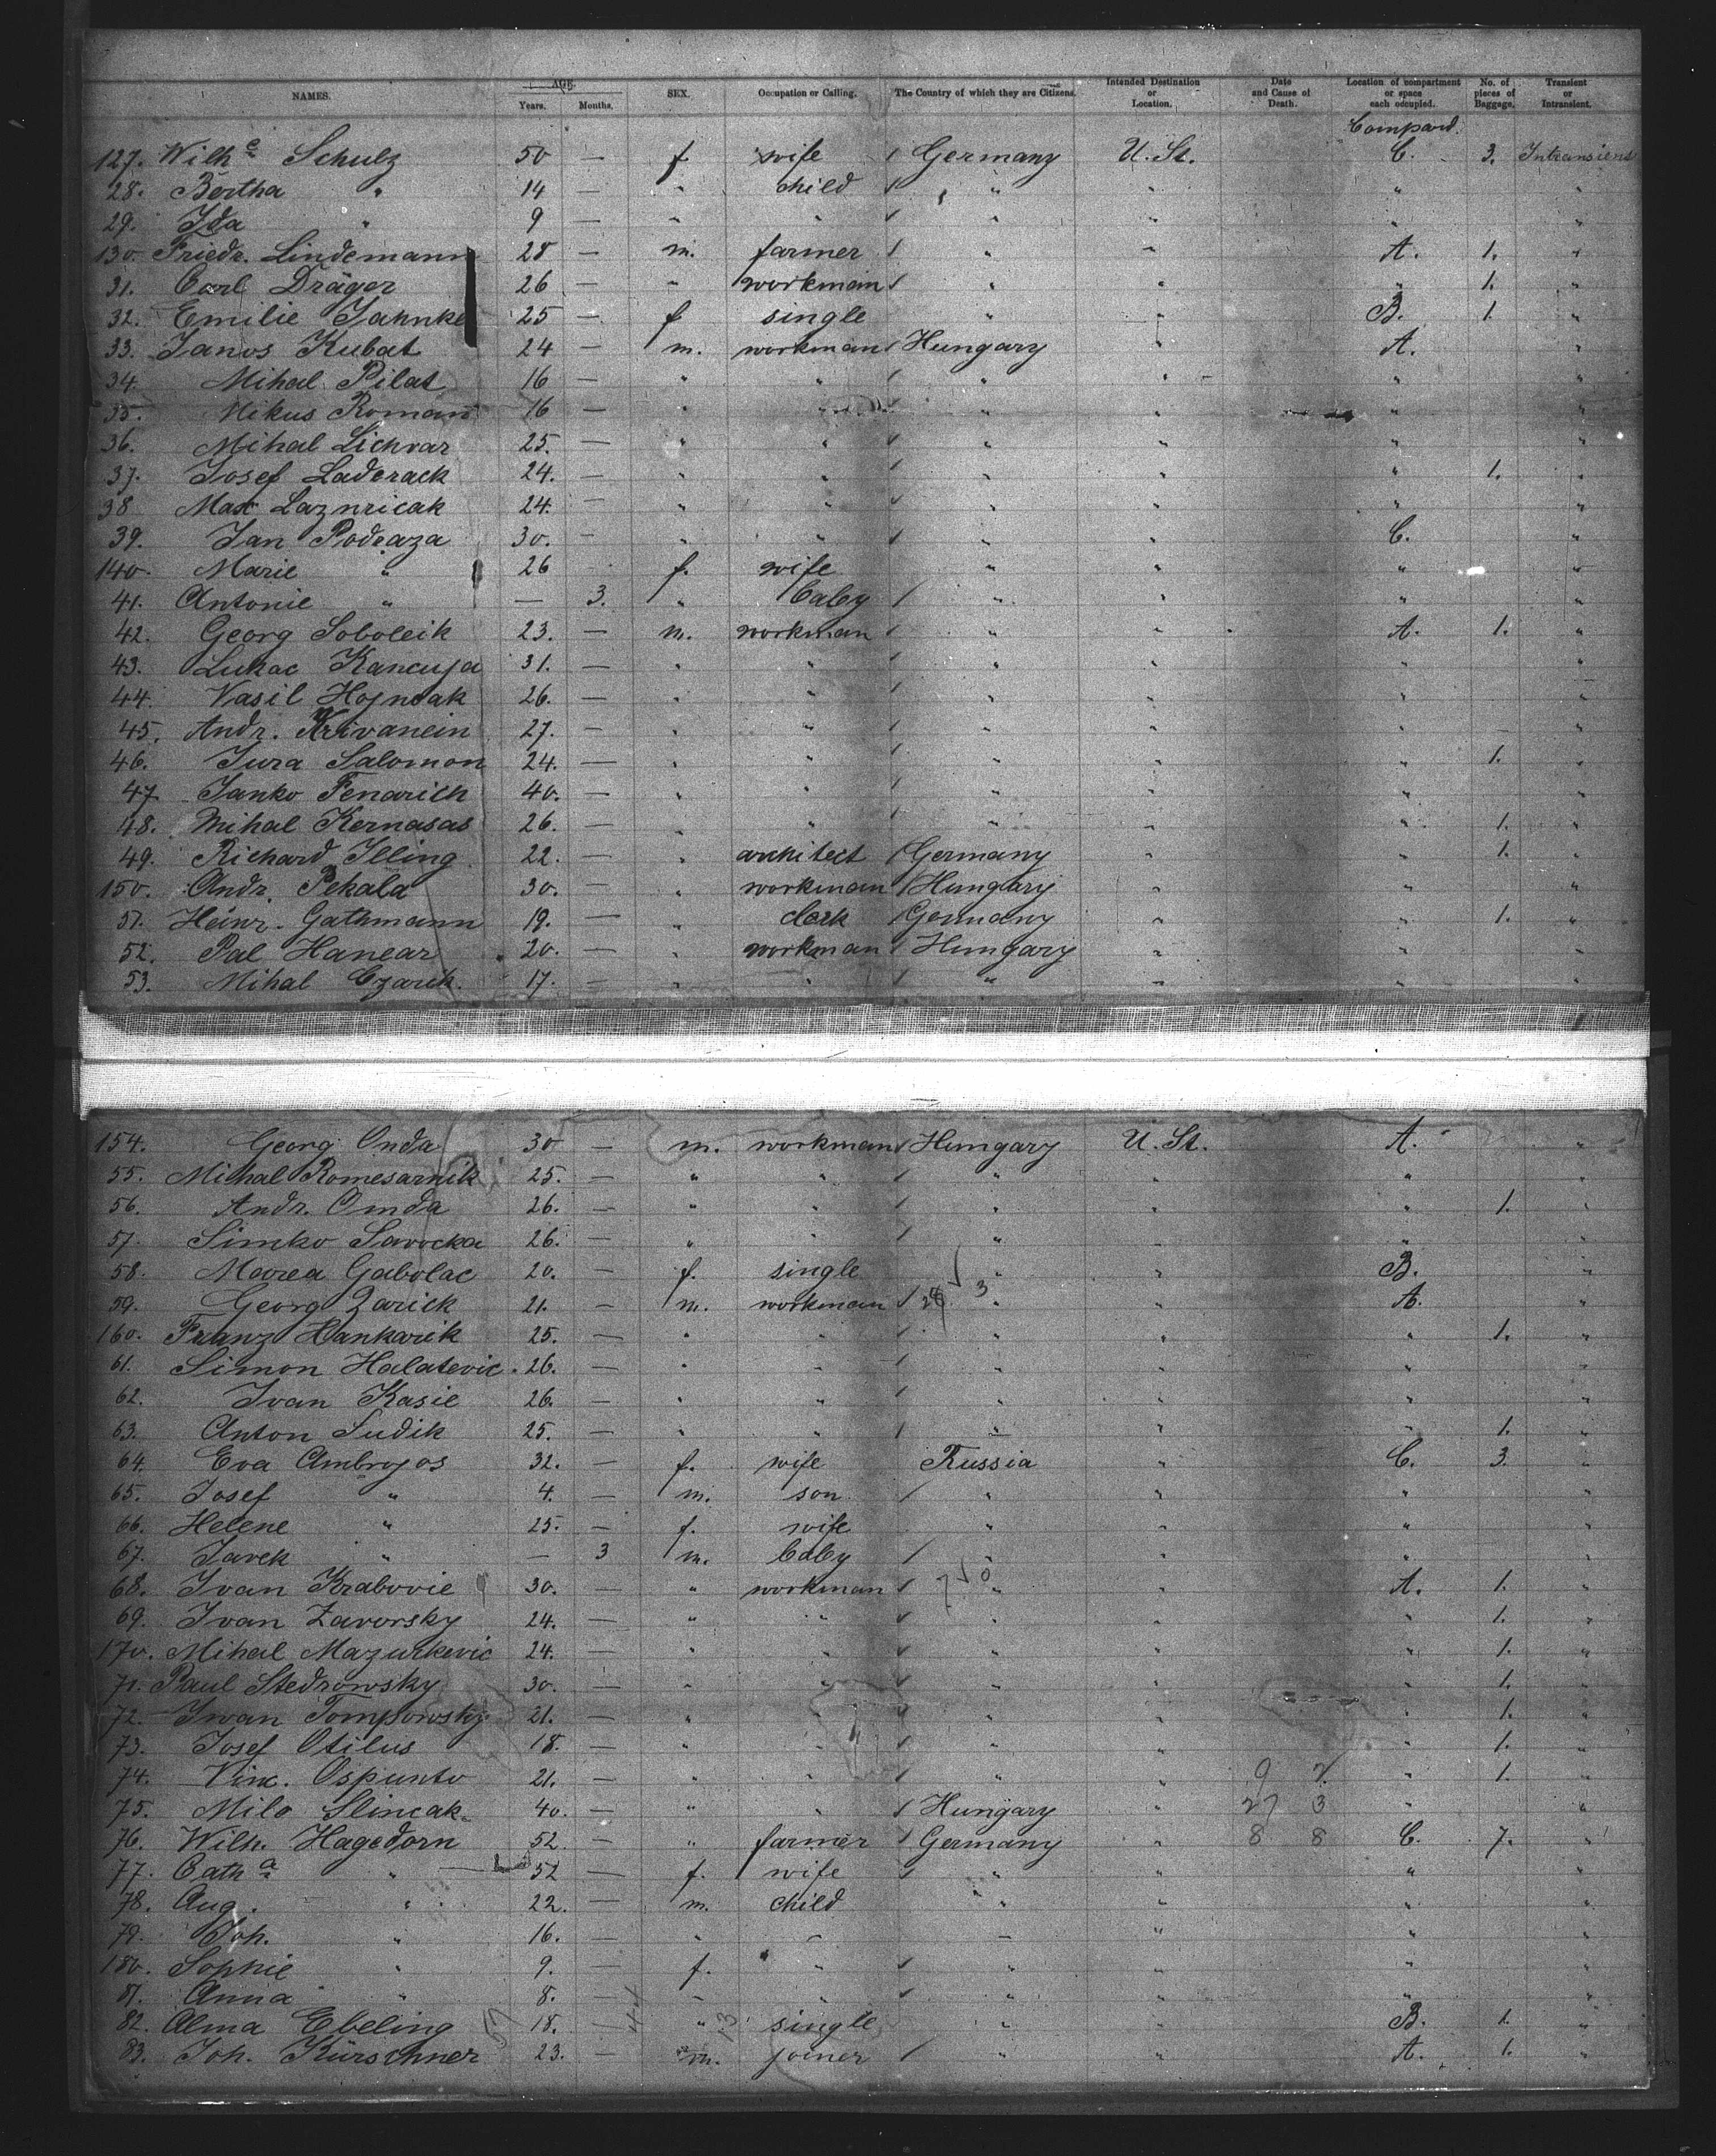 NAMES. AGE. Years. Months. SEX. Occupation or Calling. The Country of which they are Citizens. Intended Destination or Location. Date and Cause of Death. Location of compartment or space each occupied. No. of pieces of Baggage. Transient or Intransient.
Compard.
127. Wilhe Schulz 50 — f wife / Germany U. St. C. 3. Intransient
28. Bertha " 14 — " child / " " " "
29. Ida " 9 — " " / " " " "
130. Friedr. Lindemann 28 — m. farmer / " " A. 1. "
31. Carl Dräger 26 — " workman / " " " 1. "
32. Emilie Jahnke 25 — f single " " B. 1. "
33. Janos Kubat 24 — m. workman / Hungary " A. "
34. Mihal Pilat 16 — " " / " " " "
35. Mikus Roman 16 — " " / " " " "
36. Mihal Lichvar 25. — " " / " " " "
37. Josef Laderack 24. — " " / " " " 1. "
38 Max Laznricak 24. — " " / " " " "
39. Jan Podraza 30. — " " / " " C. "
140. Marie " 26 f. wife " " " "
41. Antonie " — 3. " baby / " " " "
42. Georg Soboleik 23. — m. workman / " " A. 1. "
43. Lukac Kancuja 31. — " " / " " " "
44. Vasil Hojnoak 26. — " " / " " " "
45. Andr. Krivanein 27. — " " / " " " "
46. Jura Salomon 24. — " " / " " " 1. "
47 Janko Fenarich 40. — " " / " " " "
48. Mihal Kernasas 26. — " " / " " " 1. "
49. Richard Illing 22. — " architect / Germany " " 1. "
150. Andr. Pekala 30. — " workman / Hungary " " "
51. Heinr. Gathmann 19. — " clerk / Germany " " 1. "
52. Pal Hanear 20. — " workman / Hungary " " "
53. Mihal Czarik. 17. — " " / " " " "
154. Georg Onda 30 — m. workman / Hungary U. St. A. "
55. Mihal Romesarnik 25. — " " / " " " "
56. Andr. Omda 26. — " " / " " " 1. "
57. Simko Savocka 26. — " " / " " " "
58. Marea Gabolac 20. — f. single " " B. "
59. Georg Zarick 21. — m. workman / 3 " " A. "
160. Franz Hankarik 25. — " " / " " " 1. "
61. Simon Halatevic. 26. — " " / " " " "
62. Ivan Kasic 26. — " " / " " " "
63. Anton Sudik 25. — " " / " " " 1. "
64. Eva Ambrojos 32. — f. wife Russia " C. 3. "
65. Josef " 4. — m. son / " " " "
66. Helene " 25. — f. wife " " " "
67. Jarek " — 3 m. baby / " " " "
68. Ivan Krabovic 30. — " workman / 7 0 " " A. 1. "
69. Ivan Zavorsky 24. — " " / " " " 1. "
170. Mihal Mazurkevic 24. — " " / " " " 1. "
71. Paul Stedrowsky 30. — " " / " " " 1. "
72. Iwan Tompowsky 21. — " " / " " " 1. "
73. Josef Otilus 18. — " " / " " " 1. "
74. Vinc. Ospunto 21. — " " / " " 9 7 " 1. "
75. Milo Slincak 40. — " " / Hungary " 27 3 " "
76. Wilh. Hagedorn 52. — " farmer / Germany " 8 8 C. 7. "
77. Catha " 52 — f. wife / " " " "
78. Aug. " 22. — m. child " " " "
79. Joh. " 16. — " " " " " "
180. Sophie " 9. — f. " / " " " "
81. Anna " 8. — " " / " " " "
82. Alma Ebeling 18. — " single " " B. 1. "
83. Joh. Kürschner 23. — m. joiner / " " A. 1. "